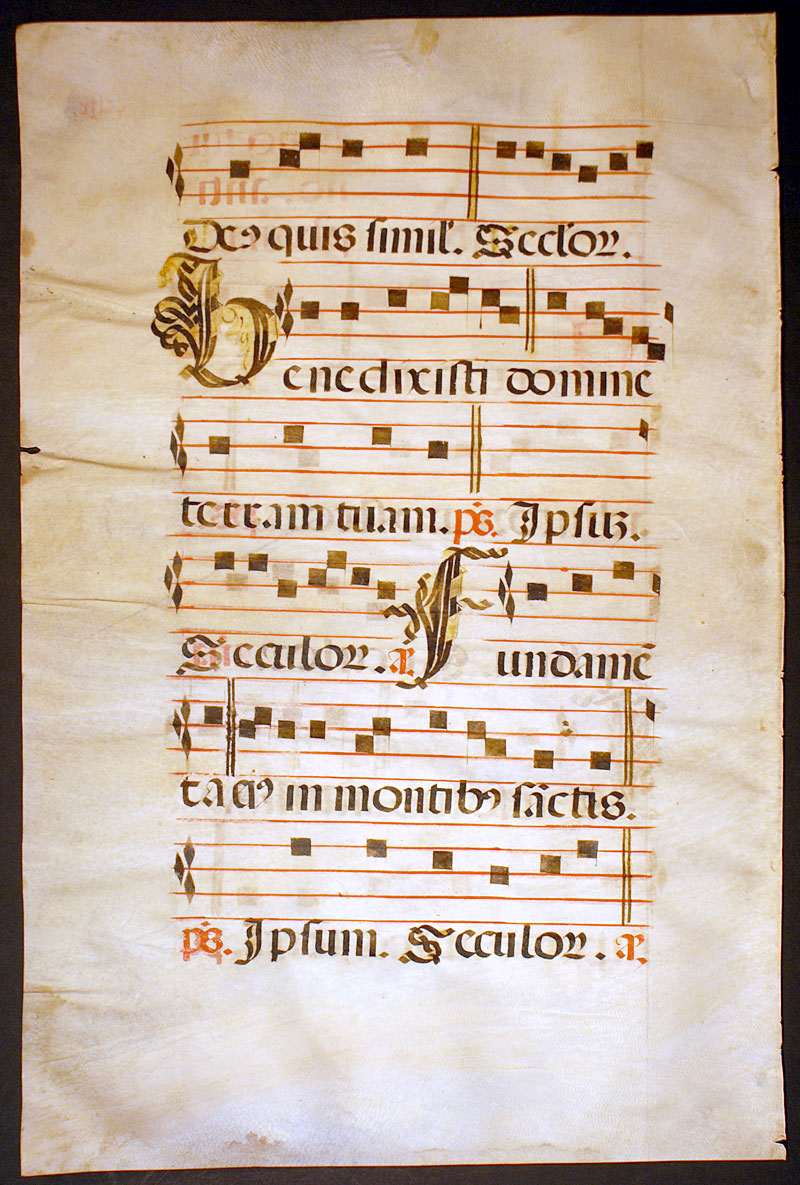 Deꝰ quis simil'. Seclor.
Benedixisti domine
terram tuam. ps. Ipsuz.
Seculor. añ. Fundamē
ta eiꝰ in montibꝰ sāctis.
ps. Ipsum. Seculor. añ.